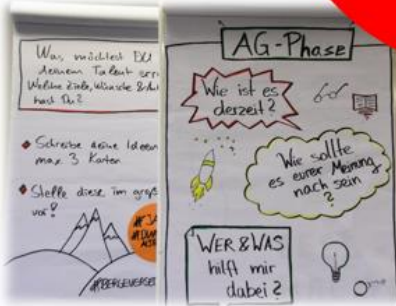 Was möchtest DU
deinem Talent
Welche Ziele, Wünsche &
hast Du?
Schreibe deine Ideen
max. 3 Karten
Stelle diese im
vor!
AG-Phase
Wie ist es
derzeit?
Wie sollte
es eurer Meinung
nach sein
?
WER & WAS
hilft mir
dabei?